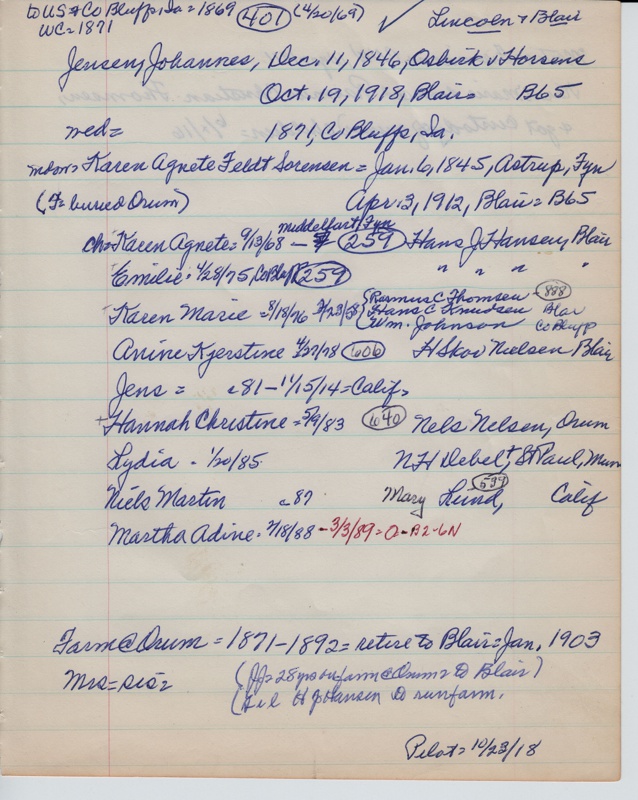 to US & Co Bluffs, Ia = 1869 401 (4/20/69) ✓ Lincoln & Blair
WC = 1871
Jensen, Johannes, Dec. 11, 1846, Osbirk v Horsens
Oct. 19, 1918, Blair = B65
wed = 1871, Co Bluffs, Ia.
Karen Agnete Feldt Sorensen = Jan. 6, 1845, Astrup, Fyn
(buried Orum) Apr. 3, 1912, Blair = B65
ch = Karen Agnete = 9/13/68 - Middelfart, Fyn 259 Hans J. Hansen, Blair
Emilie = 4/28/75, Co Bluffs 259 " " " "
Karen Marie = 8/18/76 (Rasmus C Thomsen - 888
(Hans C Knudsen Blair
(Wm. Johnson Co Bluffs
Anine Kjerstine 4/27/78 606 H Skov Nielsen Blair
Jens = c81 - 11/15/14 = Calif.
+ Hannah Christine = 5/9/83 640 Nels Nelsen, Orum
Lydia - 1/20/85 NH Debelt, St Paul, Minn
Niels Martin c87 Mary Lund, 599 Calif
Martha Adine = 7/18/88 - 3/3/89 = O - B2-6N
Farm @ Orum = 1871-1892 = retire to Blair = Jan. 1903
Mrs = sis =
(JJ = 28 yrs on farm @ Orum = to Blair)
(H Johansen to run farm.
Pilot = 10/23/18